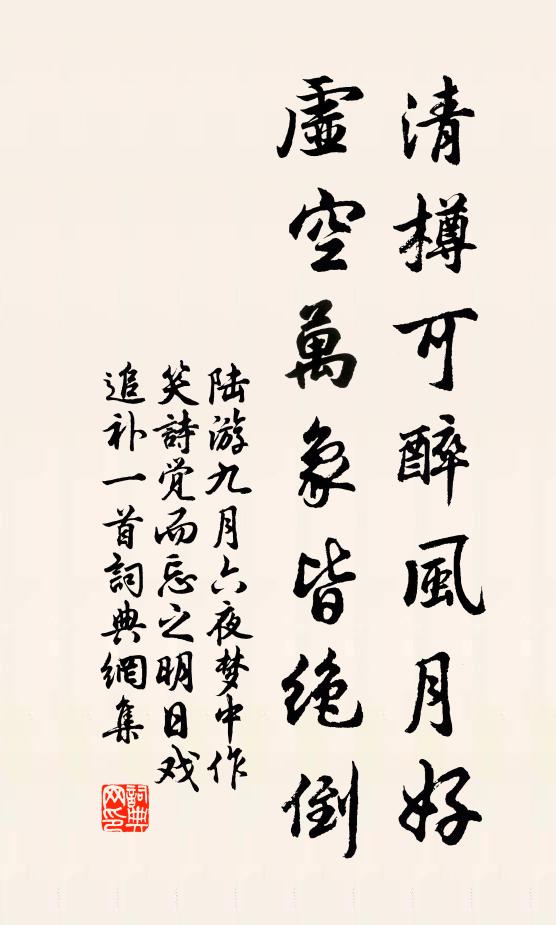 清樽可醉風月好
虛空萬象皆絶倒
陆游九月六夜梦中作
笑詩觉而忘之明日戏
追补一首詞典網集
詞典
网印